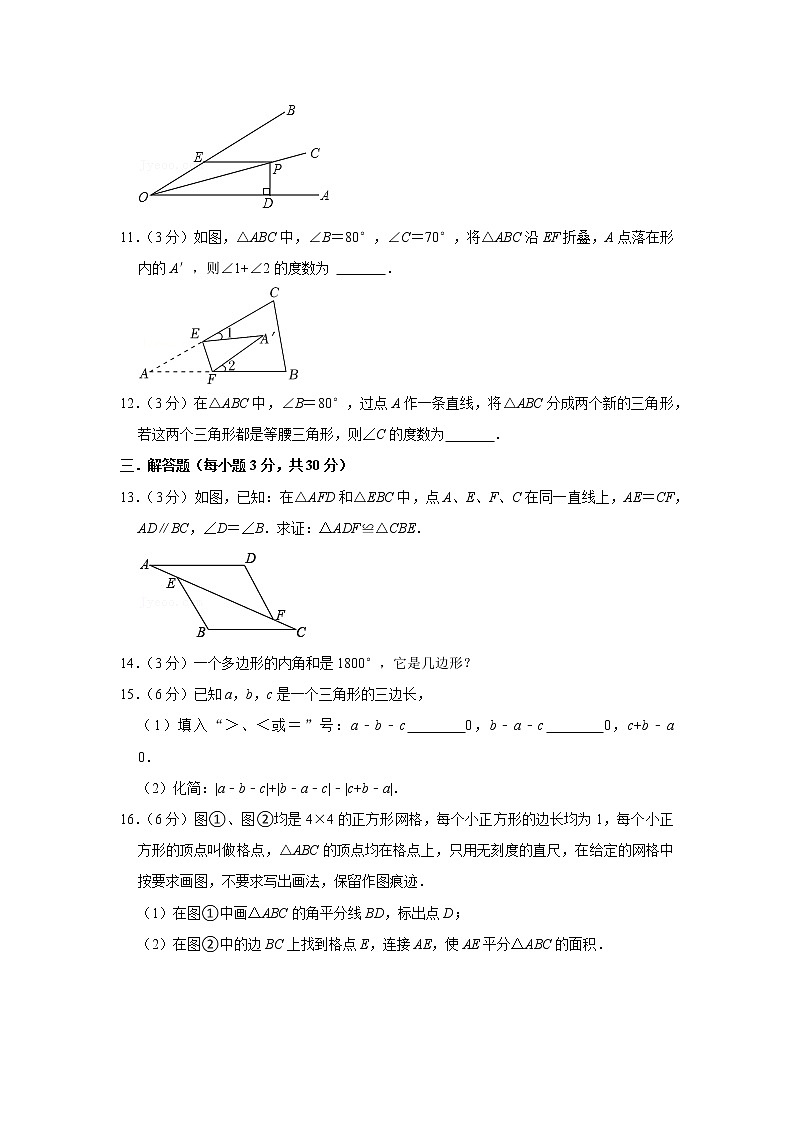 B
E
C
P
O
D
A
11.(3分)如图,△ABC中,∠B=80°,∠C=70°,将△ABC沿EF折叠,A点落在形
内的A′,则∠1+∠2的度数为 ______.
C
E
1
A′
2
A
F
B
12.(3分)在△ABC中,∠B=80°,过点A作一条直线,将△ABC分成两个新的三角形,
若这两个三角形都是等腰三角形,则∠C的度数为______.
三.解答题(每小题3分,共30分)
13.(3分)如图,已知:在△AFD和△EBC中,点A、E、F、C在同一直线上,AE=CF,
AD∥BC,∠D=∠B.求证:△ADF≌△CBE.
A
D
E
F
B
C
14.(3分)一个多边形的内角和是1800°,它是几边形?
15.(6分)已知a,b,c是一个三角形的三边长,
(1)填入“>、<或=”号:a﹣b﹣c ______0,b﹣a﹣c ______0,c+b﹣a
0.
(2)化简:|a﹣b﹣c|+|b﹣a﹣c|﹣|c+b﹣a|.
16.(6分)图①、图②均是4×4的正方形网格,每个小正方形的边长均为1,每个小正
方形的顶点叫做格点,△ABC的顶点均在格点上,只用无刻度的直尺,在给定的网格中
按要求画图,不要求写出画法,保留作图痕迹.
(1)在图①中画△ABC的角平分线BD,标出点D;
(2)在图②中的边BC上找到格点E,连接AE,使AE平分△ABC的面积.